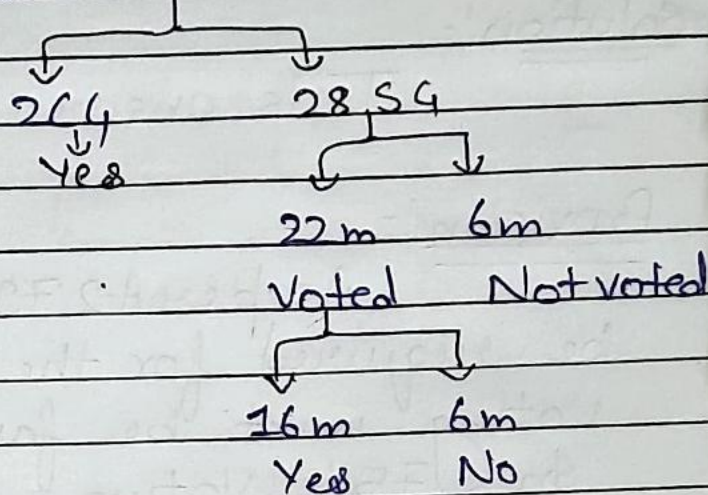 2CG 28 SG
Yes
22 m 6m
Voted Not voted
16 m 6m
Yes No